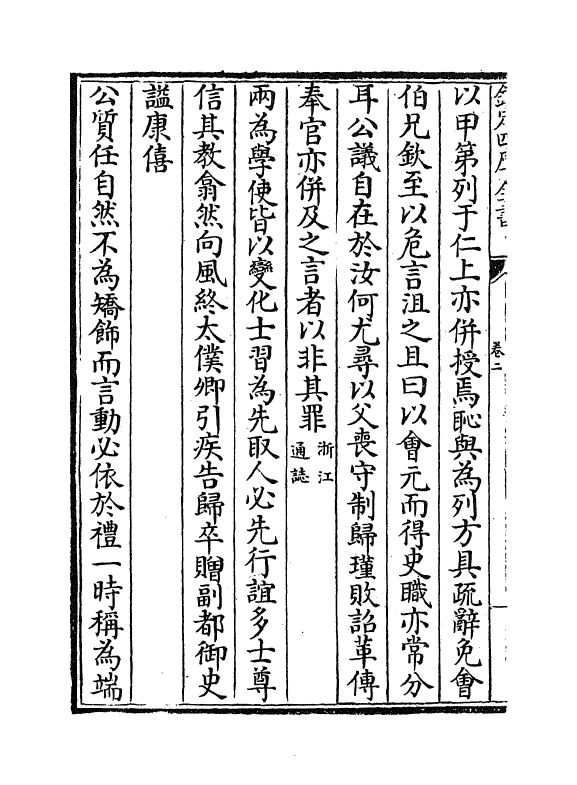 欽定四庫全書
卷二
以甲第列于仁上亦併授焉恥與為列方具疏辭免會
伯兄欽至以危言沮之且曰以會元而得史職亦常分
耳公議自在於汝何尤尋以父喪守制歸瑾敗詔革傳
奉官亦併及之言者以非其罪浙江通誌
兩為學使皆以變化士習為先取人必先行誼多士尊
信其教翕然向風終太僕卿引疾告歸卒贈副都御史
諡康僖
公質任自然不為矯飾而言動必依於禮一時稱為端